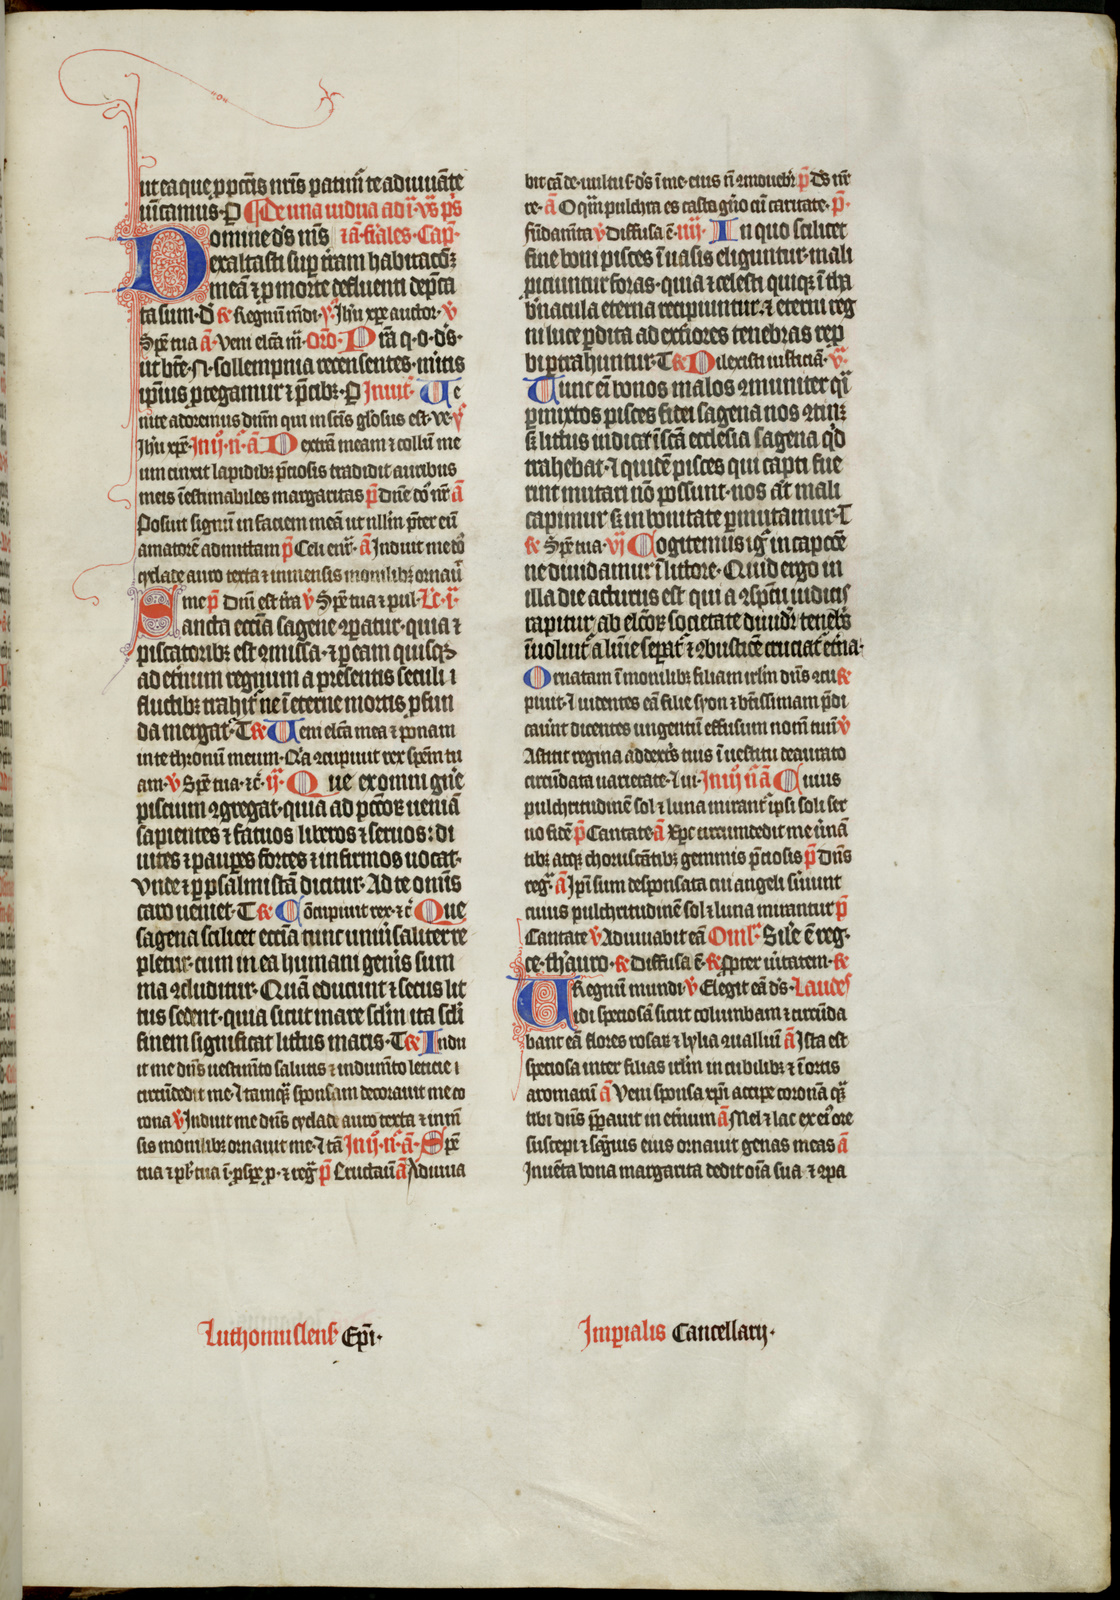 ut ea que p̱ p̱cc̄is nr̄is patim᷑ te adiuuāte
uīcamus· P̱ ¶ De una uidua ad i· vs̄ ps̄
Domine ds̄ nr̄s ⁊ ā· fiales· Cap̄·
exaltasti sup̱ tr̄am habitacōꝫ
meā ⁊ p̱ morte defluenti dep̄ca
ta sum· D᷑ R̷ Regnū mūdi· v̄· Ihū xp̄e auctor· v̄
Sp̄e tua ā· Veni elc̄a m̄· Or̄o· Dr̄a q· o· ds̄·
ut bt̄e· N· sollempnia recensentes· mitis
ip̄ius p̱tegamur ⁊ p̄cibꝫ· P̱ Inuit᷑· Ve
nite adoremus dnm̄ qui in scīs glosus est· ve· p̄s
Ihū xp̄e· In iij· n̄· ā Dextrā meam ⁊ collū me
um cinxit lapidibꝫ p̄ciosis tradidit auribus
meis īestimabiles margaritas p̄ Dn̄e dō nr̄ ā
Posuit signū in faciem meā ut nllm̄ p̄ter eū
amatorē admittam p̄ Celi enr᷑· ā Induit me dō
cyclade auro texta ⁊ inmensis monilibꝫ ornaū
me p̄ Dnī est tr̄a v̄ Sp̄e tua ⁊ pul· Lc̄· i·
Sancta eccīa sagene ꝯpatur· quia ⁊
piscatoribꝫ est ꝯmissa· ⁊ p̱ eam quisqꝫ
ad et̄num regnum a presentis seculi i
fluctibꝫ trahit᷑ ne ī eterne mortis p̱fun
da mergat᷑· T R̷ Veni elc̄a mea ⁊ ponam
in te thronū meum· Q᷑a ꝯcupiuit rex spēm tu
am· v̄ Sp̄e tua· ⁊c̄· ij· Que ex omni gn̄e
piscium ꝯgregat· quia ad pcc̄oꝝ ueniā
sapientes ⁊ fatuos liberos ⁊ seruos: di
uites ⁊ paup̱es fortes ⁊ infirmos uocat·
Vnde ⁊ p̱ psalmistā dicitur· Ad te omīs
caro ueniet· T R̷ Cōcupiuit rex· ⁊c̄ Que
sagena scilicet eccīa tunc uniūsaliter re
pletur· cum in ea humani genīs sum
ma ꝯcluditur· Quā educunt ⁊ secus lit
tus sedent· quia sicut mare sclm̄ ita scli
finem significat littus maris· T R̷ Indu
it me dn̄s uestimēto salutis ⁊ indumēto leticie i
circūdedit me· ⁊ tamqꝫ sponsam decorauit me co
rona v̄ Induit me dn̄s cyclade auro texta ⁊ inm̄
sis monilibꝫ ornauit me· ⁊ tā In iij· n̄· ā· Sp̄e
tua ⁊ pl᷑· tua ī· p̱sp̱e p̱· ⁊ reg᷑ p̄ Eructauū ā Adiuua
bit eā de· uultu s· ds̄ ī me· eius n̄ ꝯmouebr᷑ p̄ Ds̄ nr̄
re· ā O qm̄ pulchra es casta gn̄o cū caritate· p̄·
fūdamīta v̄ Diffusa ē· iiij· In quo scilicet
fine boni pisces ī uasis eliguntur· mali
p̱iciuntur foras· quia ⁊ celesti quiqꝫ ī tha
b̄nacula eterna recipiuntur· ⁊ eterni reg
ni luce p̱dita ad ext̄iores tenebras rep̱
bi p̱trahuntur· T R̷ Dilexisti iusticiā· v̄·
Tunc em̄ bonos malos ꝯmuniter q̄i
p̱mixtos pisces fidei sagena nos ꝯtīꝫ
s̄ littus iudicat ī scā ecclesia sagena q᷑d
trahebat· ⁊ quidē pisces qui capti fue
rint mutari nō possunt· nos aūt mali
capimur s̄ in bonitate p̱mutamur· T
R̷ Sp̄e tua· vj Cogitemus ig᷑ in capcōe
ne diuidamur ī littore· Quid ergo in
illa die acturus est qui a ꝯsp̄tu iudicis
rapitur· ab elc̄oꝝ societate diuidr᷑ tenebīs
īuoluit᷑ a lumīe sepat᷑ ⁊ ꝯbustiōe cruciat᷑ et̄na·
Ornatam ī monilibꝫ filiam irlm̄ dn̄s ꝯcu R̷
piuit· ⁊ uidentes eā filie syon ⁊ btīssimam p̄di
cauīnt dicentes ungentū effusum nomn̄ tuū v̄
Astitit regina ad dextīs tuis ī uestitu deaurato
circūdata uarietate· ⁊ ui· In iij n̄ ā Cuius
pulchritudinē sol ⁊ luna mirant᷑ ipsi soli ser
uo fidē p̄ Cantate ā Xp̄c circumdedit me ūnā
tibꝫ atqꝫ choruscātibꝫ gemmis p̄ciosis p̄ Dn̄s
reg᷑· ā Ipī sum desponsata cui angeli s̄uiunt
cuius pulchritudinē sol ⁊ luna mirantur p̄
Cantate v̄ Adiuuabit eā Oml᷑· Sil̄e ē reg·
ce· thauro· R̷ Diffusa ē· R̷ Pp̱ter ūitatem· R̷
Regnū mundi· v̄ Elegit eā ds̄· Laudes
Vidi speciosā sicut columbam ⁊ circūda
bant eā flores rosaꝝ ⁊ lylia ꝯualliū ā Ista est
speciosa inter filias irlm̄ in cubilibꝫ ⁊ ī ortis
aromatū ā Veni sponsa xpī accipe coronā qꝫ
tibi dn̄s p̄p̱auit in et̄num ā Mel ⁊ lac ex ei᷑ ore
suscepi ⁊ sāguis eius ornauit genas meas ā
Inuēta bona margarita dedit oīa sua· ⁊ ꝯpa
Luthomuslens̄ Ep̄i·
Imp̱ialis Cancellarij·